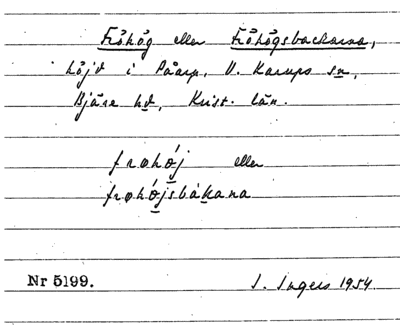 Fröhög eller Fröhögsbackarna,
höjd i Påarp, V. Karups sn,
Bjäre hd, Krist. län.
frøhö́j eller
frøhö́jsbákana
Nr 5199. I. Ingers 1954